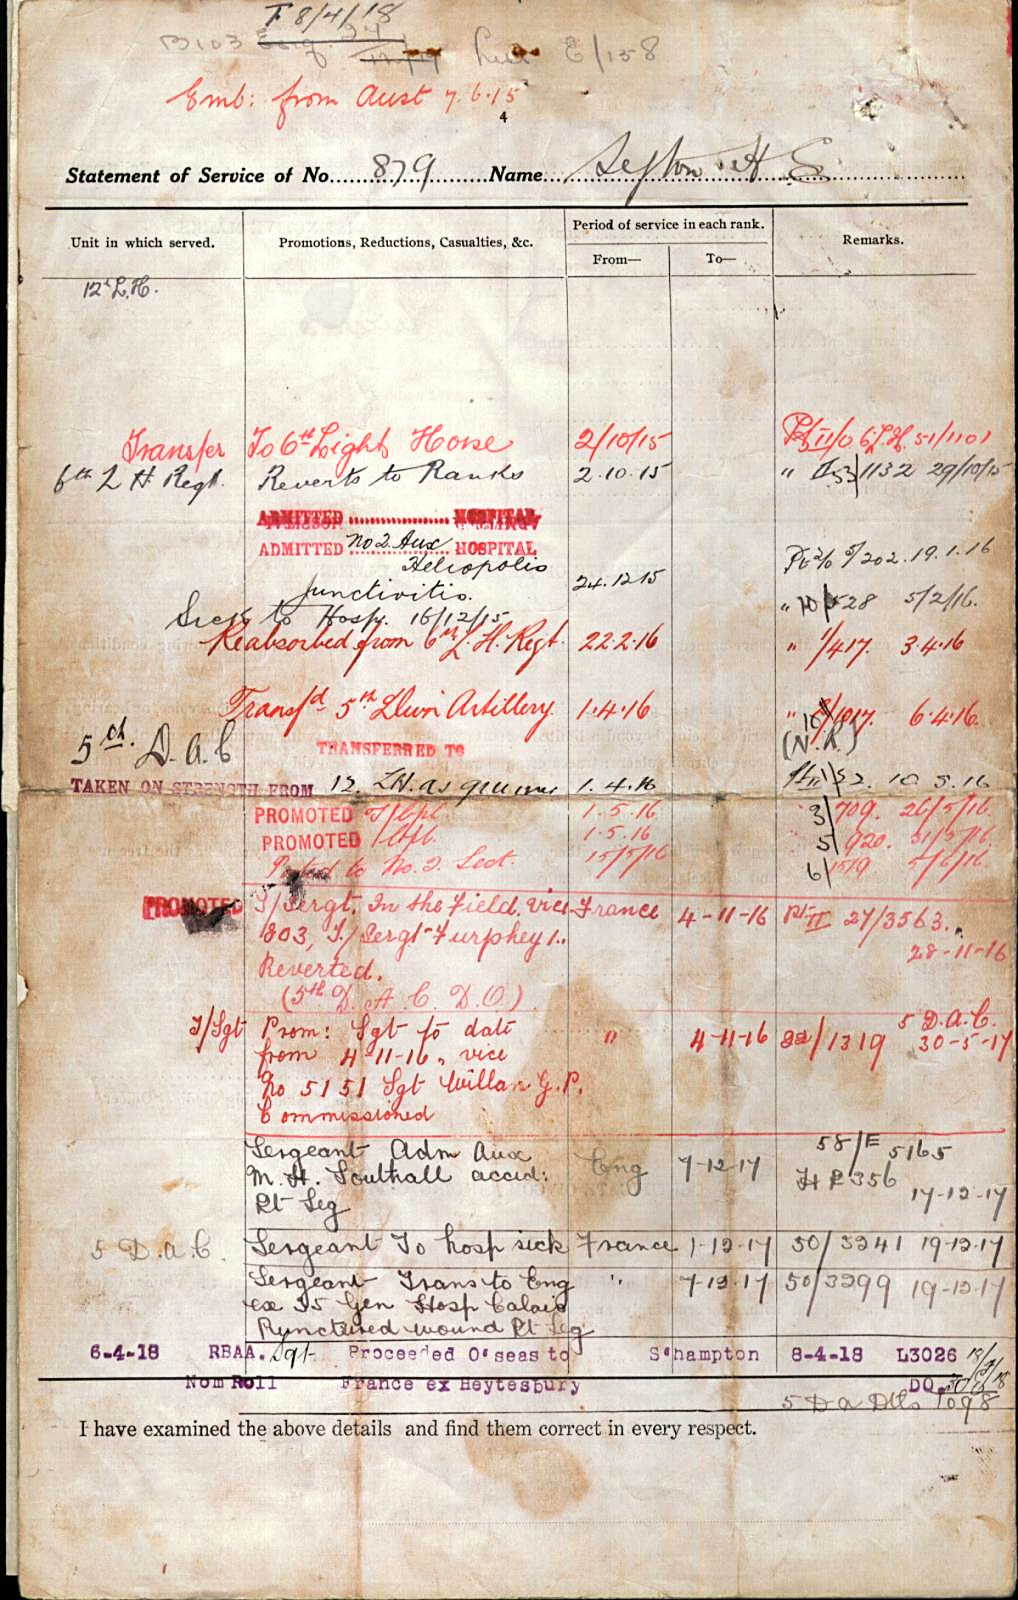 T 8/4/18
B103 E/158
Emb: from Aust 7.6.15
4
Statement of Service of No. 879 Name Sefton H E
Unit in which served. Promotions, Reductions, Casualties, &c. Period of service in each rank. Remarks.
From— To—
12 L.H.
Transfer To 6th Light Horse 2/10/15 Pt II/0 6 L.H. 51/1101
6th L H Regt. Reverts to Ranks 2.10.15 " 1132 29/10/15
ADMITTED HOSPITAL
ADMITTED No 2 Aux HOSPITAL
Heliopolis 24.12.15 5/202. 19.1.16
Junctivitis. " 10/528 5/2/16.
Sick to Hosp. 16/12/15
Reabsorbed from 6th L.H. Regt. 22.2.16 " 1/417. 3.4.16
Transf'd 5th Divn Artillery. 1.4.16 " 1017. 6.4.16.
(N.R.)
5th. D.A.C TRANSFERRED TO
TAKEN ON STRENGTH FROM 12. LH. as gunner 1.4.16 52. 10.5.16
PROMOTED T/Cpl 1.5.16 3/709. 26/5/16.
PROMOTED 1.5.16 5/920. 31/5/16.
Posted to No. 2. Sect. 15/5/16 6/1519 5/6/16.
PROMOTED T/Sergt. In the Field. vice France 4-11-16 Pt II 27/3563.
803, T/Sergt Furphey 28-11-16
Reverted.
(5th D. A. C. D.O.)
T/Sgt Prom: Sgt to date " 4-11-16 22/1319 5 D.A.C.
from 4-11-16, vice 30-5-17
No 5151 Sgt Willan G.P.
Commissioned
Sergeant Adm Aux Eng 7-12-17 58/E 5165
M. H. Southall accid: H R 356
Rt Leg 17-12-17
5 D.A.C. Sergeant To hosp sick France 1-12-17 50/3241 19-12-17
Sergeant Trans to Eng " 7-12-17 50/3299 19-12-17
ex 35 Gen Hosp Calais
Punctured wound Rt Leg
6-4-18 RBAA. Sgt Proceeded O'seas to S'hampton 8-4-18 L3026
Nom Roll France ex Heytesbury DO.
5 D A 1098
I have examined the above details and find them correct in every respect.